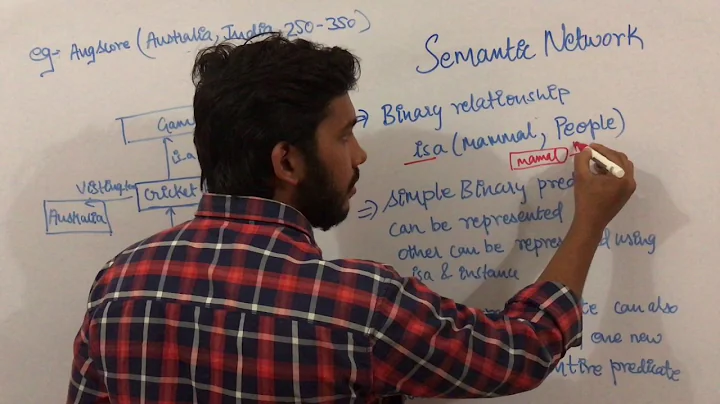 eg:- Avgscore (Australia, India, 250-350)
Semantic Network
Game
is a
Visiting team
Cricket
Australia
⇒ Binary relationship
isa (mammal, People)
mamal
⇒ Simple Binary pred
can be represented
other can be repres d using
isa & instance
te can also
one new
ntire predicate